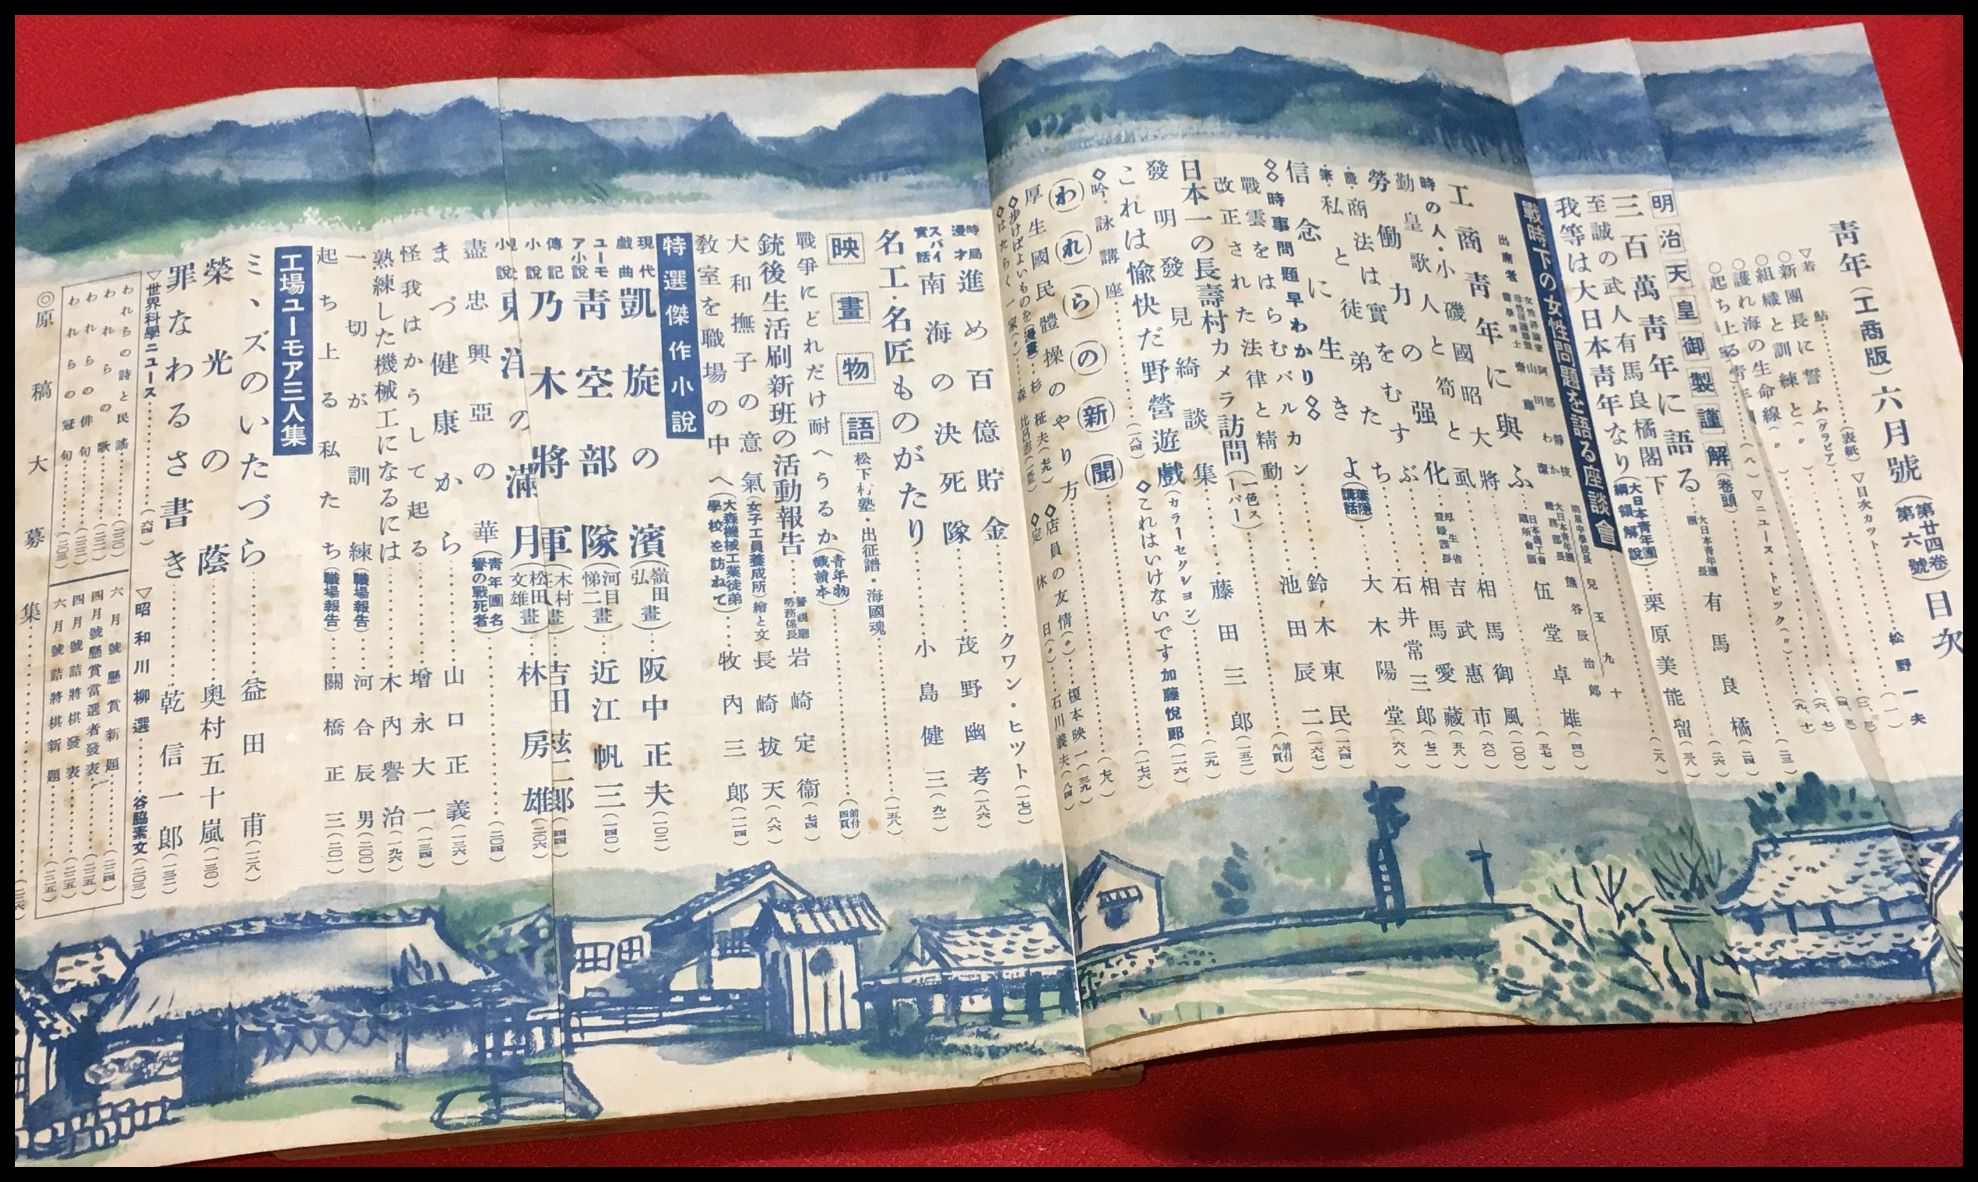 青年(工商版)六月號(第廿四卷第六號)目次
▽若鮎(表紙)▽目次カット松野一夫(一)
◎新團長に誓ふ(グラビア)
◎組織と訓練と(〃)
◎護れ海の生命線(〃)▽ニュース・トピック(〃)
明治天皇御製謹解(卷頭)
三百萬靑年に語る大日本青年團長有馬良橘(二四)
至誠の武人有馬良橘閣下(二六)
我等は大日本青年なり(大日本青年團綱領解說)栗原美能留(三八)
戰時下の女性問題を語る座談會
出席者
工商靑年に與ふ伍堂卓雄(四〇)
時の人・小磯國昭大將相馬御風(一〇〇)
皇國歌人と笱と虱吉武惠市(六〇)
勤勞力の强化相馬愛藏(五八)
勞働法は實をむすぶ石井常三郎(七二)
商・私と徒弟たち大木陽堂(六八)
信念に生きよ(葉隱講話)鈴木東民(一六四)
◇時事問題早わかり◇
戰雲をはらむバルカン池田辰二(一六七)
改正された法律と精動
日本一の長壽村カメラ訪問(一色スーパー)
發明發見綺談集藤田三郎(一五二)
これは愉快だ野營遊戲(カラーセクション)◇これはいけないです加藤悅郎(一一六)
◇吟詠講座(一八四)
われらの新聞
厚生國民體操のやり方
◇店員の友情(〃)榎本映一(一三九)
◇步けばよいものを(漫畫)杉柾夫(七九)◇定休日(〃)石川義夫(八四)
◇はたらく一家(〃)森比呂志
時局漫才進め百億貯金クワン・ヒット(一七〇)
スパイ實話南海の決死隊茂野幽考(一八六)
名工・名匠ものがたり小島健三(九二)
映畫物語松下村塾・出征譜・海國魂(一五八)
戰爭にどれだけ耐へうるか(靑年物識讀本)(前付四頁)
銃後生活刷新班の活動報告警視廳勞務係長岩崎定衞(七四)
大和撫子の意氣(女子工員養成所)繪と文長崎拔天(八六)
敎室を職場の中へ(大森機械工業徒弟學校を訪ねて)牧內三郎(一一四)
特選傑作小說
現代戲曲凱旋の濱(嶺田弘畫)阪中正夫(一〇二)
ユーモア小說靑空部隊(河目悌二畫)近江帆三(一四〇)
傳記小說乃木將軍(木村畫)吉田絃二郎(四四)
小說東洋の滿月(松田文雄畫)林房雄(二〇六)
盡忠興亞の華(靑年團名譽の戰死者)(二〇四)
まづ健康から山口正義(一三六)
怪我はかうして起る增永大一(一三四)
熟練した機械工になるには木內譽治(一九六)
一切が訓練(職場報告)河合辰男(二〇〇)
起ち上る私たち(職場報告)關橋正三(二〇一)
工場ユーモア三人集
ミヽズのいたづら益田甫(一二八)
榮光の蔭奧村五十嵐(一三〇)
罪なわるさ書き乾信一郎(一三二)
▽世界科學ニュース(一六四)▽昭和川柳選谷脇素文(二〇三)
われらの詩と民謠(二三〇)
われらの歌(二三一)
われらの俳句(二三二)
われらの冠句(二三三)
六月號懸賞新題(二二四)
四月號懸賞當選者發表(二二五)
四月號詰將棋發表(二二五)
六月號詰將棋新題(二二五)
◎原稿大募集